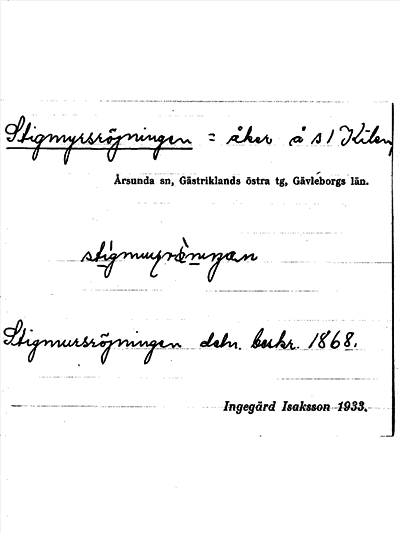 Stigmyrsröjningen = åker å s/ Kilen
Årsunda sn, Gästriklands östra tg, Gävleborgs län.
Stigmursröjningen beskr. 1868.
Ingegärd Isaksson 1933.